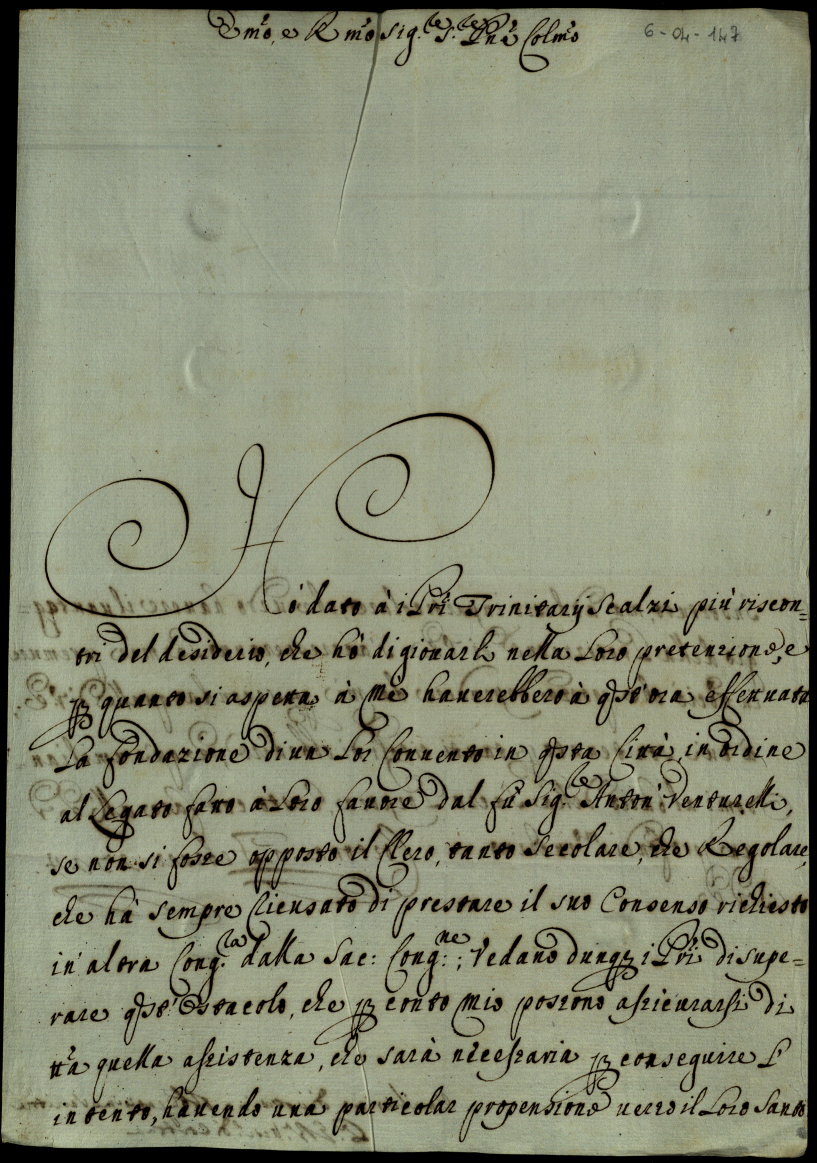 Emo, e Rmo Sig.re S.re Pne Colmo
6-04-147
Hò dato à i PPri Trinitarij Scalzi più riscon=
tri del desiderio, che hò di giovarli nella Loro pretenzione, e
p quanto si aspetta à me haverebbero à qst'ora effettuata
La fondazione di un Lor Convento in qsta Città, in ordine
al Legato fatto à Loro favore dal fù Sig.re Anton' Venturelli,
se non si fosse opposto il Clero, tanto Secolare, che Regolare,
che hà sempre ricusato di prestare il suo Consenso richiesto
in altra Cong.ra dalla Sac: Cong.ne; Vedano dunq; i PPri di supe=
rare qst'Ostacolo, che p conto mio possono assicurarsi di
tta quella assistenza, che sarà necessaria p conseguire L'
intento, havendo una particolar propensione verso il Loro Santo